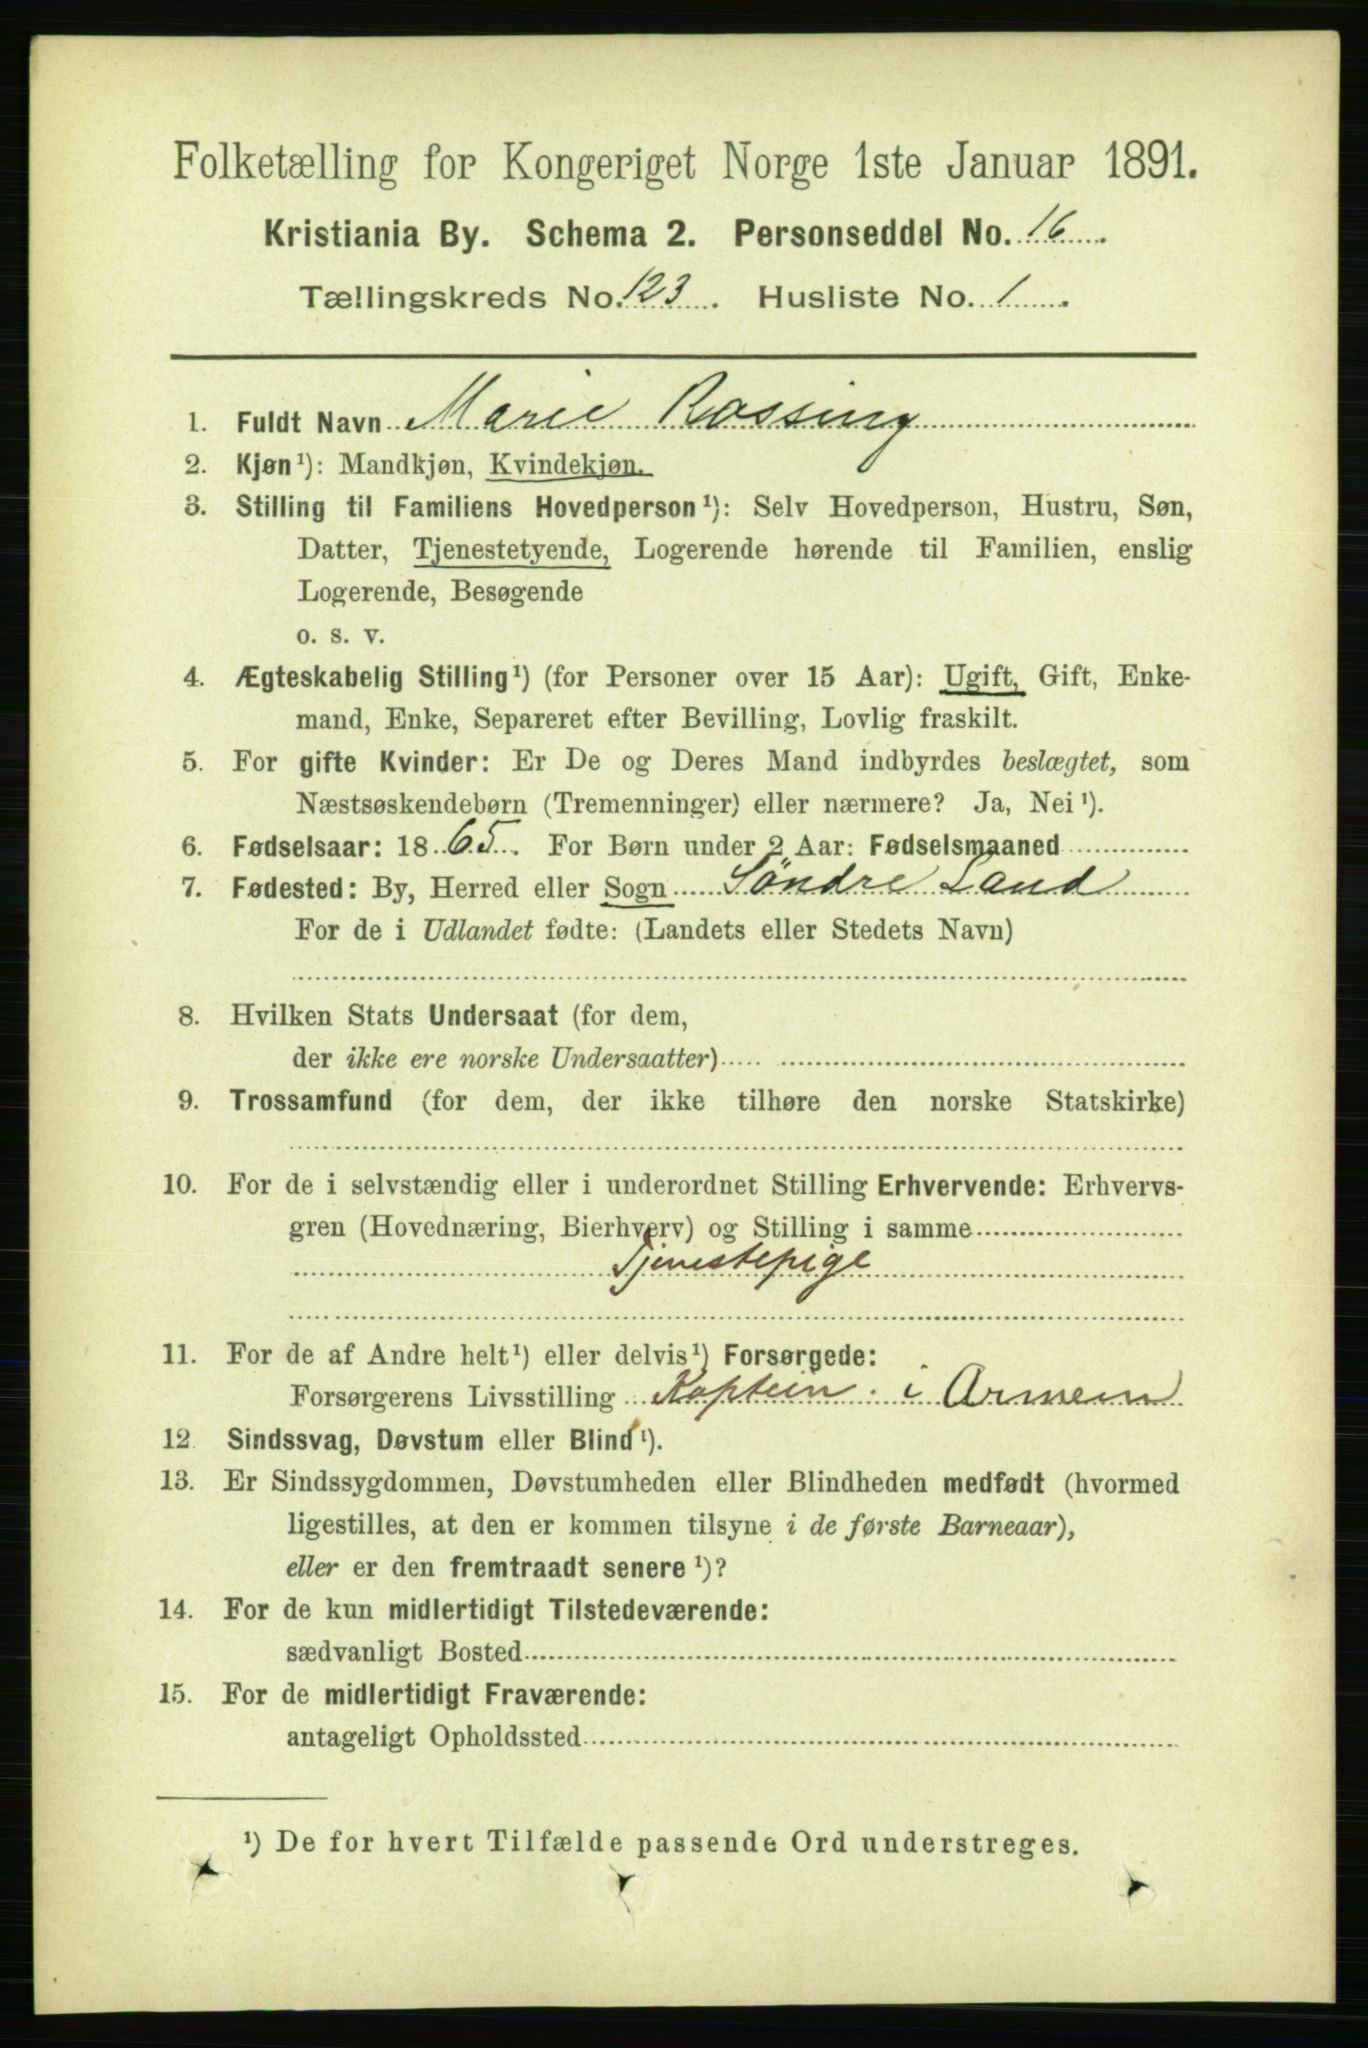 Folketælling for Kongeriget Norge 1ste Januar 1891.
Kristiania By. Schema 2. Personseddel No. 16.
Tællingskreds No. 123. Husliste No. 1.
1. Fuldt Navn Marie Rossing
2. Kjøn¹): Mandkjøn, Kvindekjøn.
3. Stilling til Familiens Hovedperson¹): Selv Hovedperson, Hustru, Søn,
Datter, Tjenestetyende, Logerende hørende til Familien, enslig
Logerende, Besøgende
o. s. v.
4. Ægteskabelig Stilling¹) (for Personer over 15 Aar): Ugift, Gift, Enke-
mand, Enke, Separeret efter Bevilling, Lovlig fraskilt.
5. For gifte Kvinder: Er De og Deres Mand indbyrdes beslægtet, som
Næstsøskendebørn (Tremenninger) eller nærmere? Ja, Nei¹).
6. Fødselsaar: 1865. For Børn under 2 Aar: Fødselsmaaned
7. Fødested: By, Herred eller Sogn Söndre Land
For de i Udlandet fødte: (Landets eller Stedets Navn)
8. Hvilken Stats Undersaat (for dem,
der ikke ere norske Undersaatter)
9. Trossamfund (for dem, der ikke tilhøre den norske Statskirke)
10. For de i selvstændig eller i underordnet Stilling Erhvervende: Erhvervs-
gren (Hovednæring, Bierhverv) og Stilling i samme
Tjenestepige
11. For de af Andre helt¹) eller delvis¹) Forsørgede:
Forsørgerens Livsstilling Kaptein i Armeen
12. Sindssvag, Døvstum eller Blind¹).
13. Er Sindssygdommen, Døvstumheden eller Blindheden medfødt (hvormed
ligestilles, at den er kommen tilsyne i de første Barneaar),
eller er den fremtraadt senere¹)?
14. For de kun midlertidigt Tilstedeværende:
sædvanligt Bosted
15. For de midlertidigt Fraværende:
antageligt Opholdssted
¹) De for hvert Tilfælde passende Ord understreges.